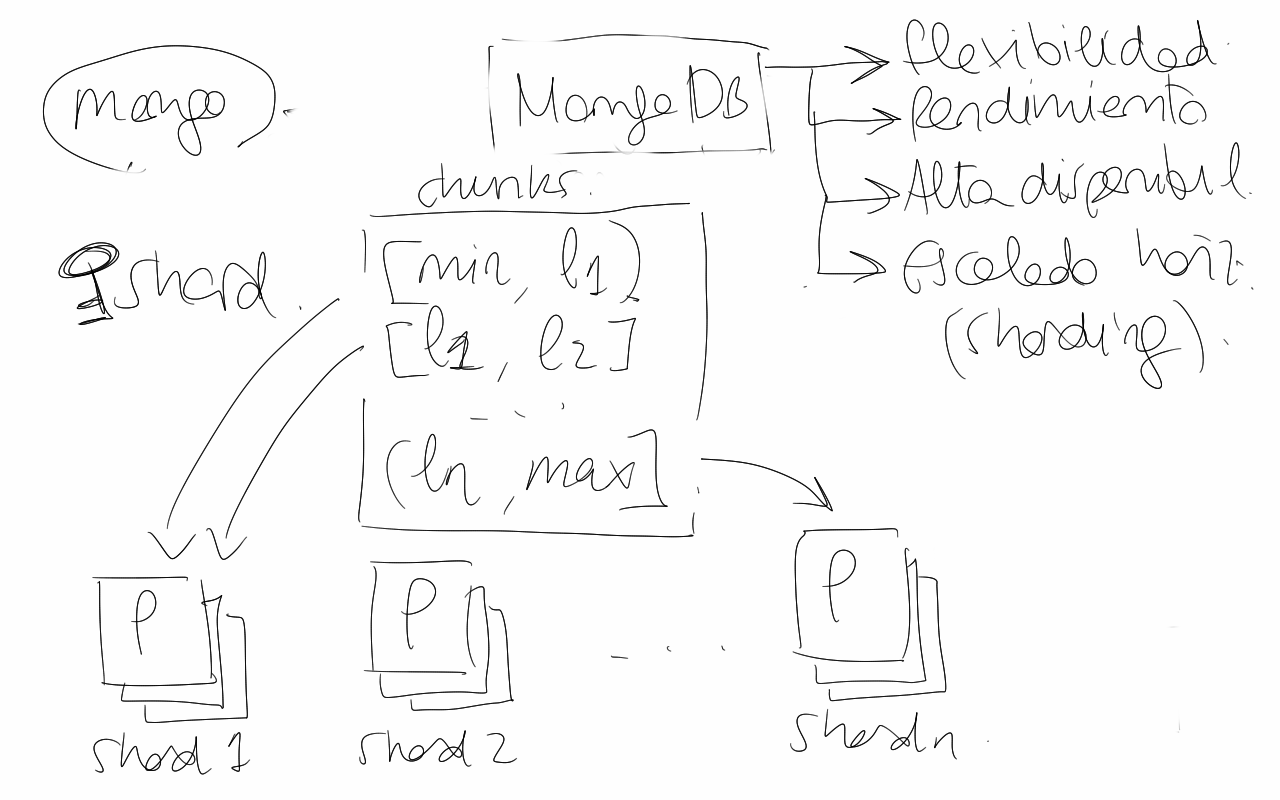 mongo
MongoDB
flexibilidad
Rendimiento
Alta disponibil.
Escalado horiz.
(sharding).
chunks.
shard.
[min, l1)
[l1, l2]
- . . .
(ln, max]
P
P
- . . .
P
shard 1
shard 2
shard n